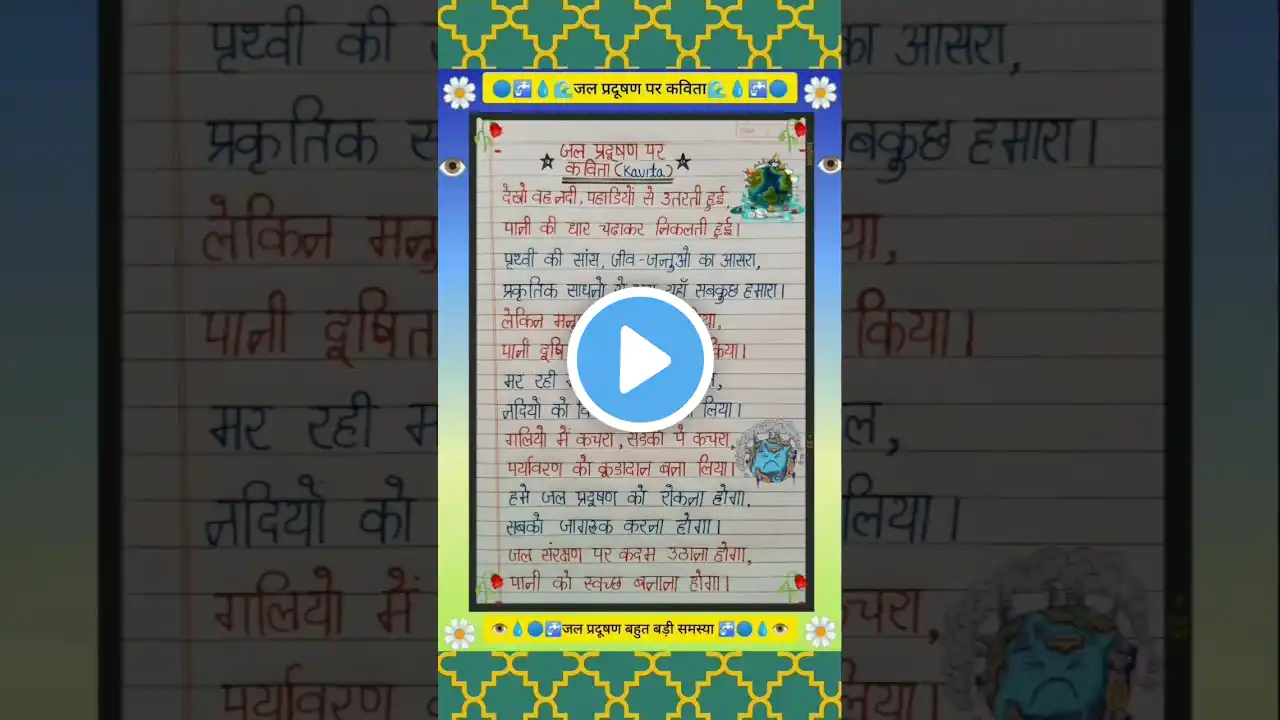 जल प्रदूषण पर कविता
जल प्रदूषण पर
कविता (Kavita)
देखो वह नदी, पहाडियों से उतरती हुई,
पानी की धार चढाकर निकलती हुई।
पृथ्वी की सांस, जीव-जन्तुओ का आसरा,
प्रकृतिक साधनो यहाँ सबकुछ हमारा।
लेकिन
पानी दूषित किया।
मर रही
नदियो को लिया।
गलियो में कचरा, सडको पे कचरा,
पर्यावरण को कूडादान बना लिया।
हमे जल प्रदूषण को रोकना होगा,
सबको जागरूक करना होगा।
जल संरक्षण पर कदम उठाना होगा,
पानी को स्वच्छ बनाना होगा।
जल प्रदूषण बहुत बड़ी समस्या